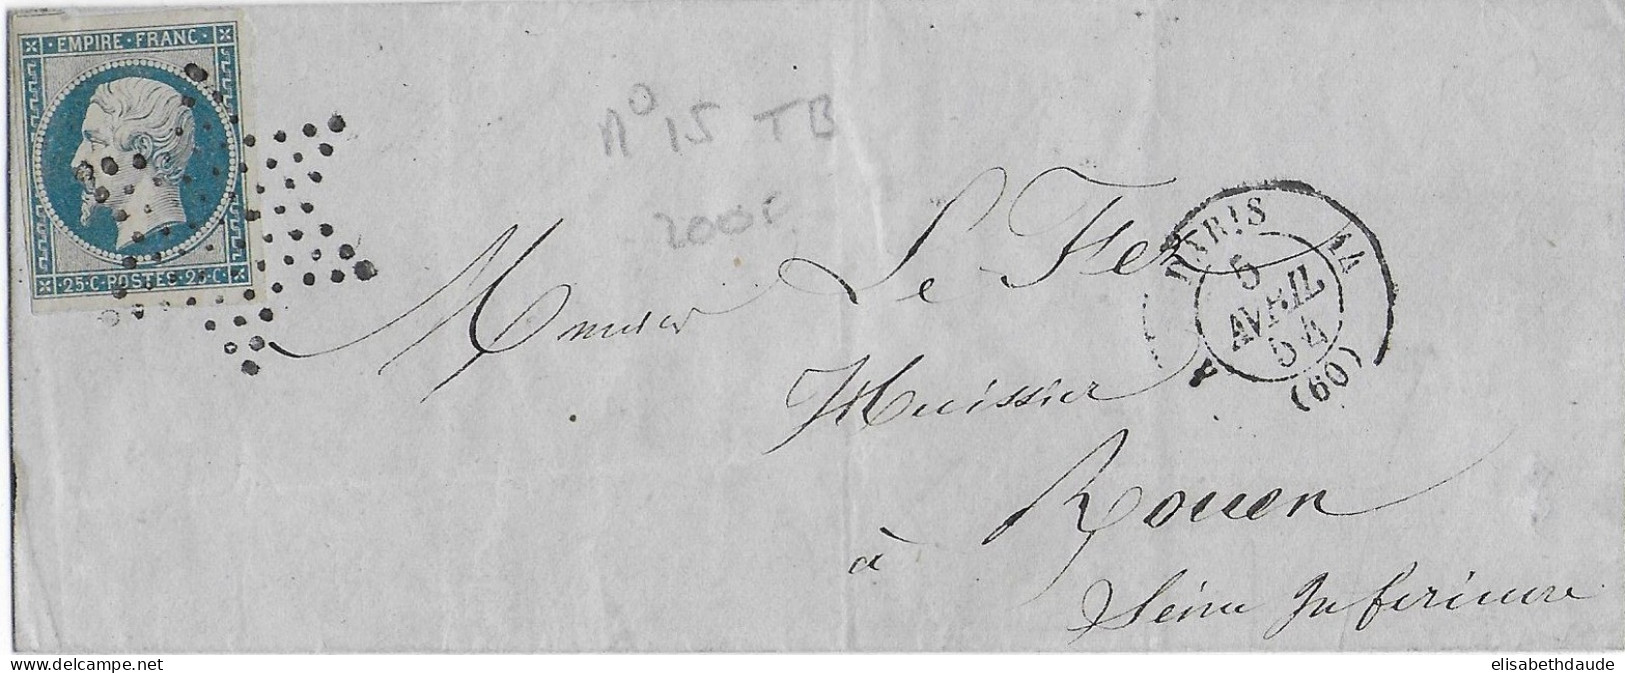 EMPIRE·FRANC·
·25·C·POSTES·25·C·
N° 15 TB
200€
Monsieur Le Fer
Huissier
à Rouen
Seine Inférieure
PARIS
5
AVRIL
54
(60)
delcampe.net
elisabethdaude